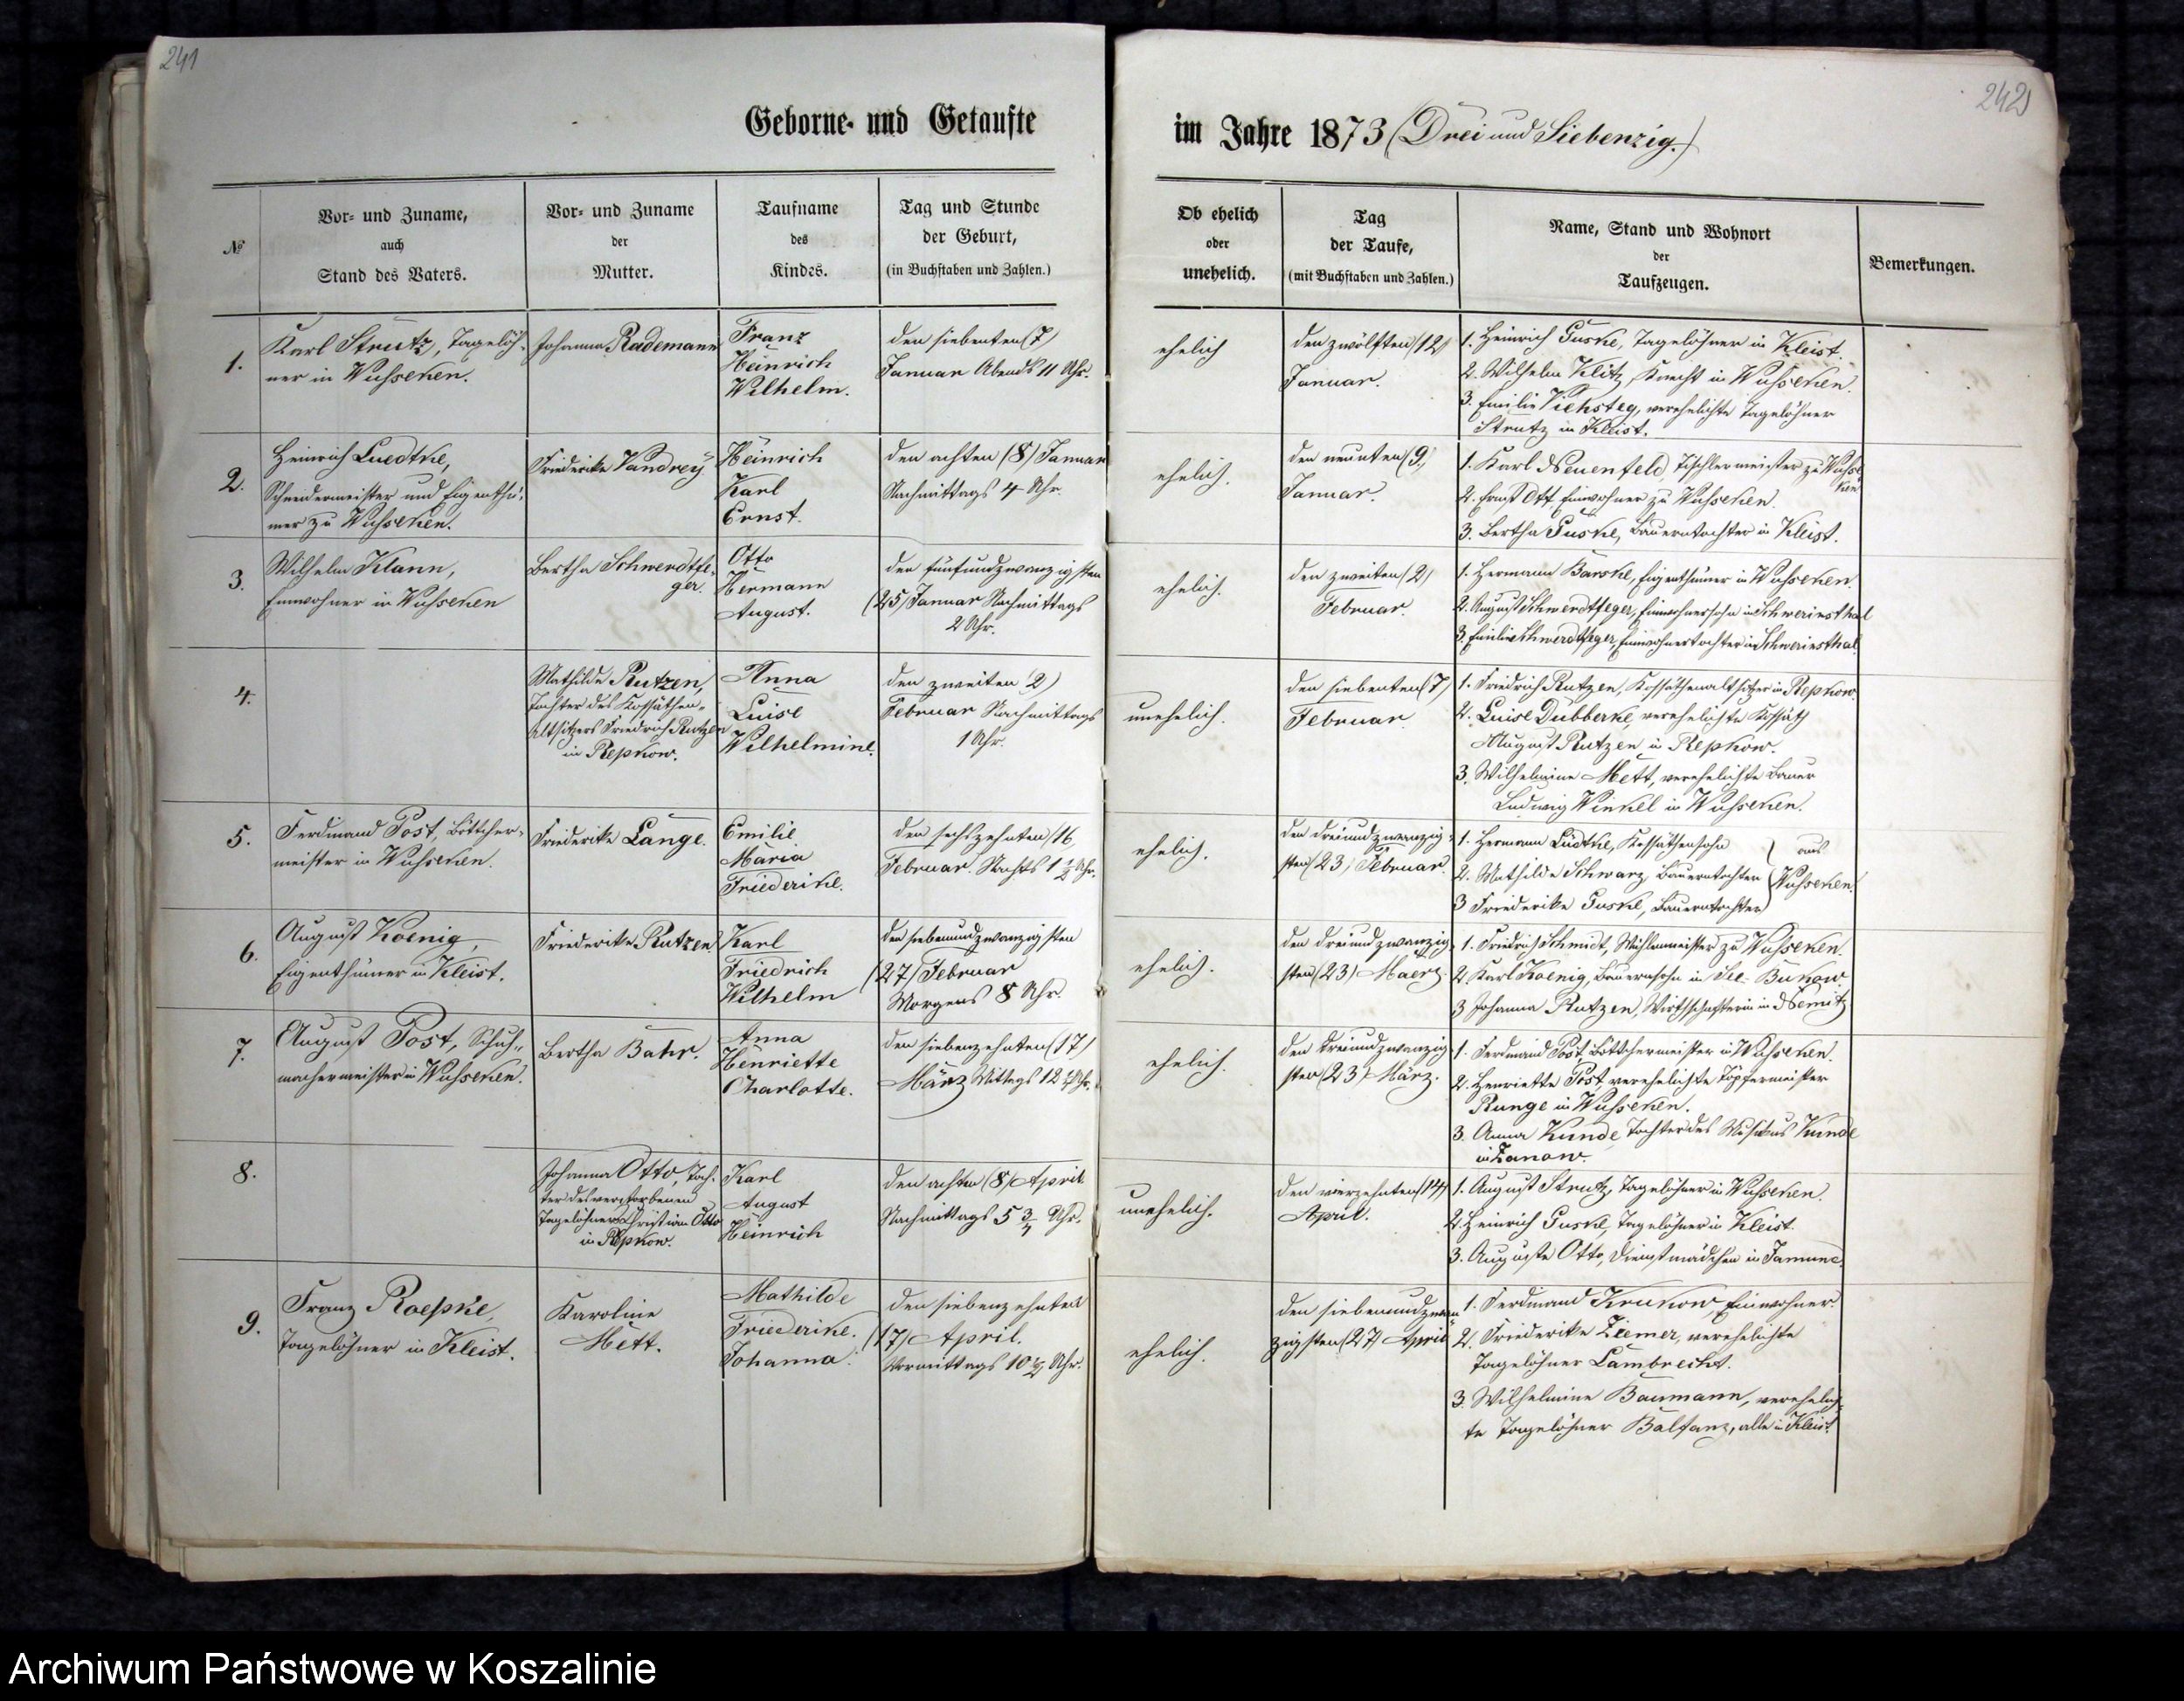 241
Geborne- und Getaufte
№
Vor- und Zuname,
auch
Stand des Vaters.
Vor- und Zuname
der
Mutter.
Taufname
des
Kindes.
Tag und Stunde
der Geburt,
(in Buchstaben und Zahlen.)
1.
Karl Strutz, Tagelöh-
ner in Wusseken.
Johanna Rademann
Franz
Heinrich
Wilhelm.
den siebenten (7)
Januar Abends 11 Uhr.
2.
Heinrich Luedtke,
Schneidermeister und Eigenthü-
mer zu Wusseken.
Friederike Vandrey
Heinrich
Karl
Ernst.
den achten (8) Januar
Nachmittags 4 Uhr.
3.
Wilhelm Klann,
Einwohner in Wusseken
Bertha Schwerdtfe-
ger.
Otto
Hermann
August.
den fünfundzwanzigsten
(25) Januar Nachmittags
2 Uhr.
4.
Mathilde Rutzen,
Tochter des Kossäthen-
altsitzers Friedrich Rutzen
in Repkow.
Anna
Luise
Wilhelmine.
den zweiten (2)
Februar Nachmittags
1 Uhr.
5.
Ferdinand Post, Böttcher-
meister in Wusseken.
Friederike Lange.
Emilie
Maria
Friederike.
den sechszehnten (16
Februar. Nachts 1 ½ Uhr.
6.
August Koenig,
Eigenthümer in Kleist.
Friederike Rutzen
Karl
Friedrich
Wilhelm
den siebenundzwanzigsten
(27) Februar
Morgens 8 Uhr.
7.
August Post, Schuh-
machermeister in Wusseken.
Bertha Bahr.
Anna
Henriette
Charlotte.
den siebenzehnten (17)
März Mittags 12 ½ Uhr.
8.
Johanna Otto, Toch-
ter des verstorbenen
Tagelöhners Christian Otto
in Repkow.
Karl
August
Heinrich
den achten (8) April
Nachmittags 5 ¾ Uhr.
9.
Franz Raepke,
Tagelöhner in Kleist.
Karoline
Mett.
Mathilde
Friederike.
Johanna.
den siebenzehnten
(17) April.
Vormittags 10 ½ Uhr.
242
im Jahre 1873 (Drei und Siebenzig.)
Ob ehelich
oder
unehelich.
Tag
der Taufe,
(mit Buchstaben und Zahlen.)
Name, Stand und Wohnort
der
Taufzeugen.
Bemerkungen.
ehelich
den zwölften (12)
Januar.
1. Heinrich Guske, Tagelöhner in Kleist.
2. Wilhelm Klitz, Knecht in Wusseken.
3. Emilie Viehsteg, verehelichte Tagelöhner
Strutz in Kleist.
ehelich.
den neunten (9.)
Januar.
1. Karl Neuenfeld, Tischlermeister zu Wusse
ken
2. Ernst Ott, Einwohner zu Wusseken.
3. Bertha Guske, Bauerntochter in Kleist.
ehelich.
den zweiten (2)
Februar.
1. Hermann Barske, Eigenthümer in Wusseken.
2. August Schwerdtfeger, Einwohnersohn in Schwerinsthal
3. Emilie Schwerdtfeger, Einwohnertochter in Schwerinsthal.
unehelich.
den siebenten (7)
Februar
1. Friedrich Rutzen, Kossäthenaltsitzer in Repkow.
2. Luise Dubberke, verehelichte Kossäth
August Rutzen in Repkow.
3. Wilhelmine Mett, verehelichte Bauer
Ludwig Winkel in Wusseken.
ehelich.
den dreiundzwanzig-
sten (23) Februar.
1. Hermann Lüdtke, Kossäthensohn
2. Mathilde Schwarz, Bauerntochter
3 Friederike Guske, Bauerntochter
aus
Wusseken.
ehelich.
den dreiundzwanzig
sten (23) Maerz.
1. Friedrich Schmidt, Mühlenmeister zu Wusseken.
2. Karl Koenig, Bauernsohn in See-Bukow.
3 Johanna Rutzen, Wirthschafterin in Nemitz
ehelich.
den dreiundzwanzig
sten (23) März.
1. Ferdinand Post, Böttchermeister in Wusseken.
2. Henriette Post, verehelichte Töpfermeister
Runge in Wusseken.
3. Anna Kunde, Tochter des Musikus Kunde
in Zanow.
unehelich.
den vierzehnten (14)
April.
1. August Strutz, Tagelöhner in Wusseken.
2. Heinrich Guske, Tagelöhner in Kleist.
3. Auguste Otto, Dienstmädchen in Jamund
ehelich.
den siebenundzwan
zigsten (27) April
1. Ferdinand Krukow, Einwohner.
2. Friederike Ziemer, verehelichte
Tagelöhner Lambrecht.
3. Wilhelmine Baumann, verehelich-
te Tagelöhner Balfanz, alle in Kleist.
Archiwum Państwowe w Koszalinie